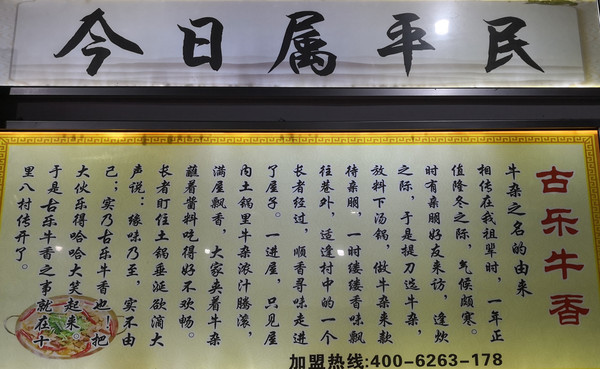 今日属平民
古乐牛香
牛杂之名的由来
相传在我祖辈时，一年正
值隆冬之际，气候颇寒。
时有亲朋好友来访，逢炊
之际，于是提刀选牛杂，
放料下汤锅，做牛杂来款
待亲朋，一时缕缕香味飘
往巷外，适逢村中的一个
长者经过，顺香寻味走进
了屋子。一进屋，只见屋
内土锅里牛杂浓汁腾滚，
满屋飘香，大家夹着牛杂
蘸着酱料吃得好不欢畅。
长者盯住土锅垂涎欲滴大
声说：臻味乃至，实不由
己；实乃古乐牛香也！把
大伙乐得哈哈大笑起来。
于是古乐牛香之事就在十
里八村传开了。
加盟热线:400-6263-178